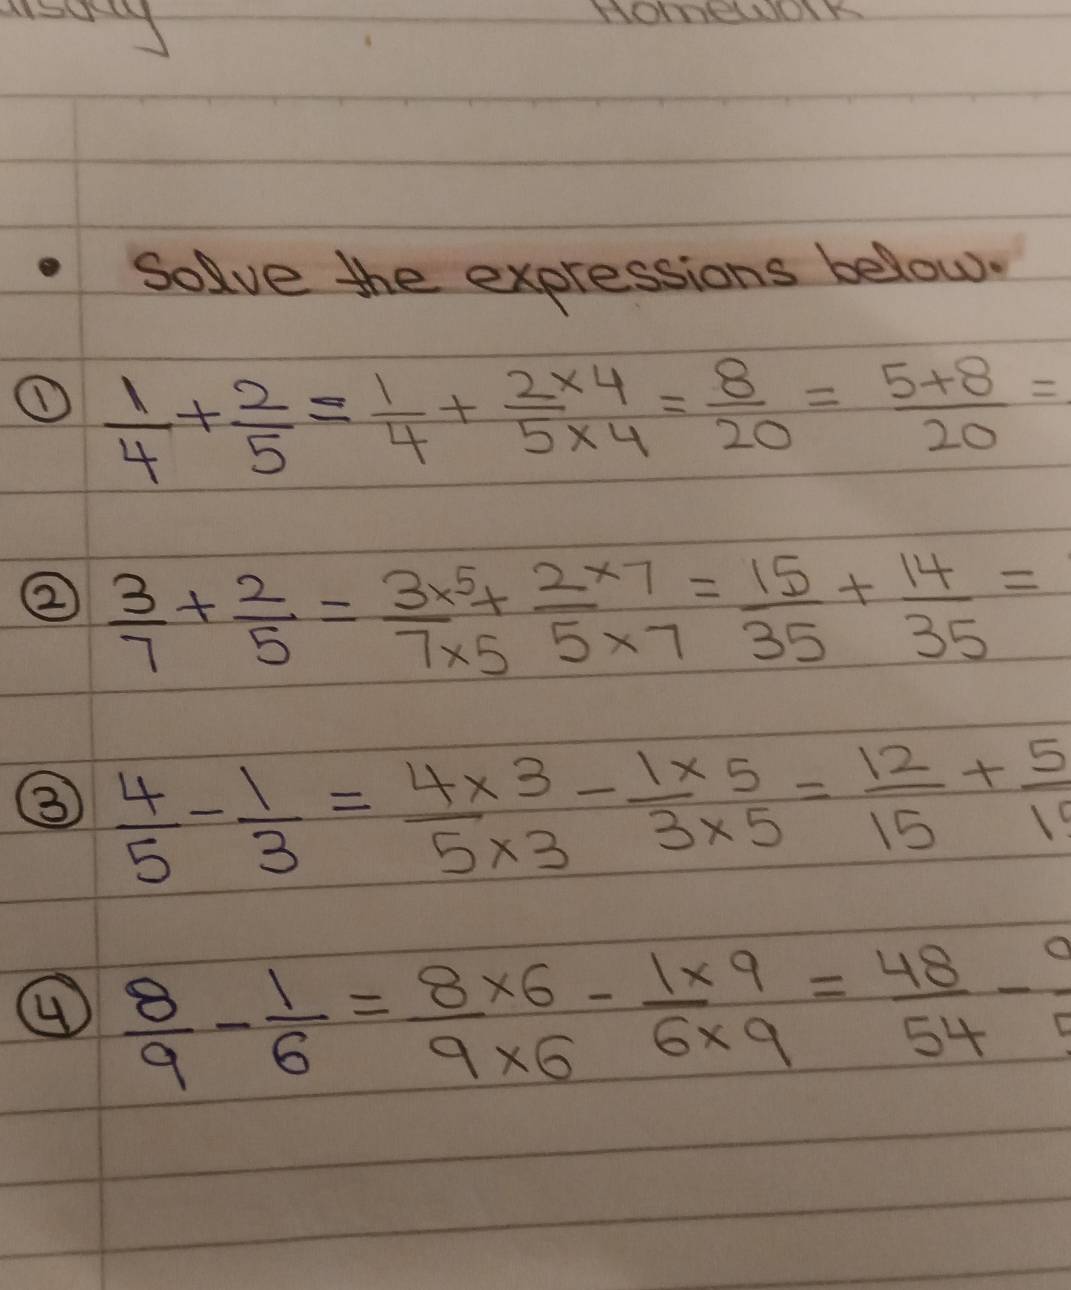 Homework
• Solve the expressions below.
① 1/4 + 2/5 = 1/4 + 2×4/5×4 = 8/20 = 5+8/20 =
② 3/7 + 2/5 = 3×5/7×5 + 2×7/5×7 = 15/35 + 14/35 =
③ 4/5 - 1/3 = 4×3/5×3 - 1×5/3×5 = 12/15 + 5/15
④ 8/9 - 1/6 = 8×6/9×6 - 1×9/6×9 = 48/54 -